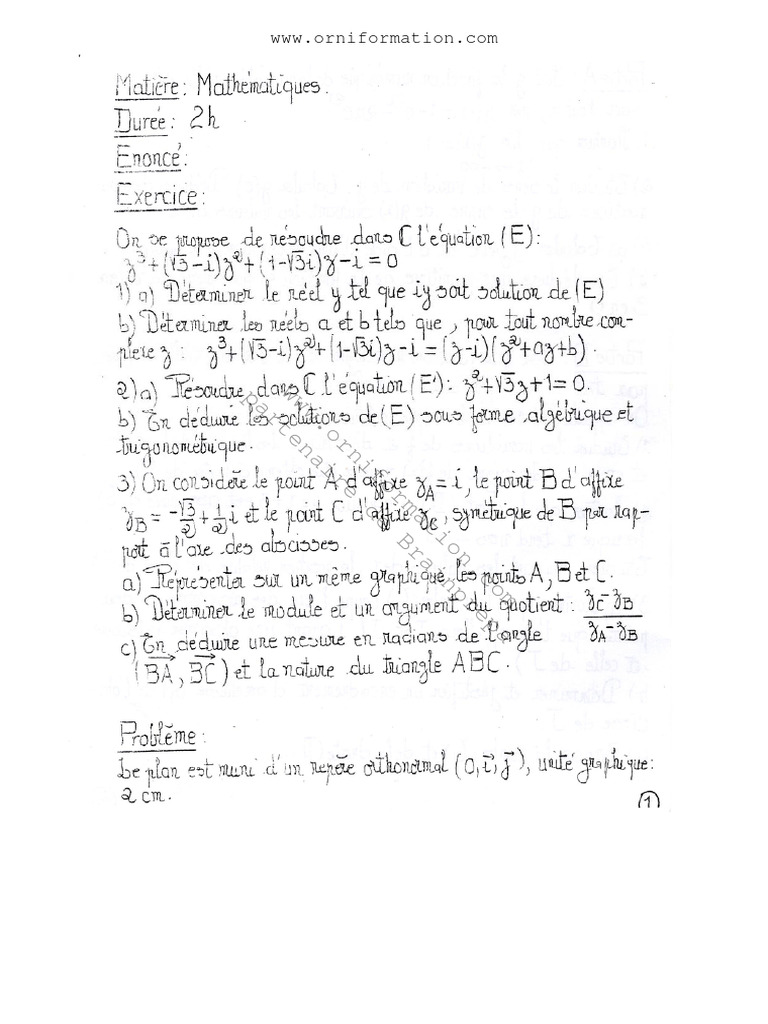 www.orniformation.com
Matière: Mathématiques.
Durée: 2h
Enoncé:
Exercice:
On se propose de résoudre dans ℂ l'équation (E):
z³+(√3-i)z²+(1-√3i)z-i=0
1) a) Déterminer le réel y tel que iy soit solution de (E)
b) Déterminer les réels a et b tels que, pour tout nombre com-
plexe z: z³+(√3-i)z²+(1-√3i)z-i=(z-i)(z²+az+b).
2)a) Résoudre dans ℂ l'équation (E'): z²+√3z+1=0.
b) En déduire les solutions de (E) sous forme algébrique et
trigonométrique.
3) On considère le point A d'affixe z_A = i, le point B d'affixe
z_B = -√3/2 + 1/2 i et le point C d'affixe z_C, symétrique de B par rap-
port à l'axe des abscisses.
a) Représenter sur un même graphique les points A, B et C.
b) Déterminer le module et un argument du quotient: (z_C - z_B)/(z_A - z_B)
c) En déduire une mesure en radians de l'angle
(BA, BC) et la nature du triangle ABC.
www.orniformation.com
partenaire de Brainprep
Problème:
Le plan est muni d'un repère orthonormal (O, i, j), unité graphique:
2 cm.
1